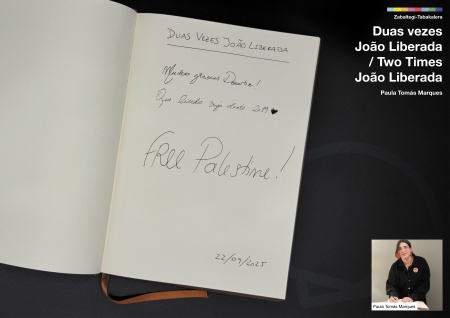 DUAS VEZES JOÃO LIBERADA
Muchas gracias Donostia!
Que lindo desde 2019 ♥
FREE Palestine!
22/09/2025
Zabaltegi-Tabakalera
Duas vezes
João Liberada
/ Two Times
João Liberada
Paula Tomás Marques
Paula Tomás Marques